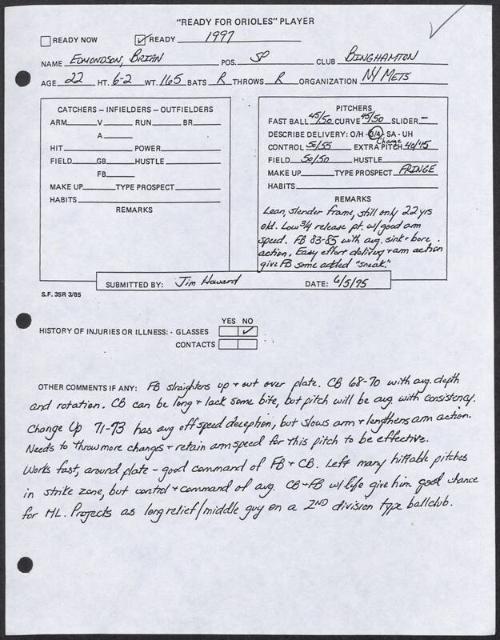 "READY FOR ORIOLES" PLAYER
READY NOW READY 1997
NAME EDMONDSON, BRIAN POS. SP CLUB BINGHAMTON
AGE 22 HT. 6-2 WT. 165 BATS R THROWS R ORGANIZATION NY METS
CATCHERS - INFIELDERS - OUTFIELDERS
ARM V RUN BR
A
HIT POWER
FIELD GB HUSTLE
FB
MAKE UP TYPE PROSPECT
HABITS
REMARKS
PITCHERS
FAST BALL 45/50 CURVE 45/50 SLIDER -
DESCRIBE DELIVERY: O/H - 3/4 - SA - UH
CONTROL 55/55 EXTRA PITCH Change 40/45
FIELD 50/50 HUSTLE
MAKE UP TYPE PROSPECT FRINGE
HABITS
REMARKS
Lean, slender frame, still only 22 yrs
old. Low 3/4 release pt. w/ good arm
speed. FB 83-85 with avg. sink + bore
action. Easy effort delivery + arm action
give FB some added "sneak."
SUBMITTED BY: Jim Howard DATE: 6/5/95
S.F. 3SR 3/85
YES NO
HISTORY OF INJURIES OR ILLNESS: - GLASSES
CONTACTS
OTHER COMMENTS IF ANY: FB straightens up + out over plate. CB 68-70 with avg. depth
and rotation. CB can be long + lack some bite, but pitch will be avg with consistency.
Change Up 71-73 has avg off speed deception, but slows arm + lengthens arm action.
Needs to throw more changes + retain arm speed for this pitch to be effective.
Works fast, around plate - good command of FB + CB. Left many hittable pitches
in strike zone, but control + command of avg. CB + FB w/ life give him good chance
for ML. Projects as long relief/middle guy on a 2ND division type ballclub.